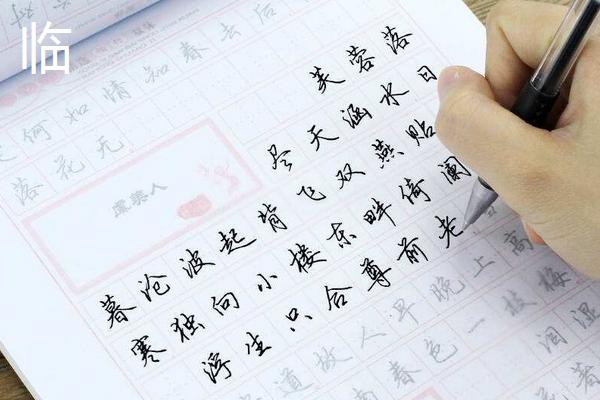 临
何如情知春去后
落花无
芙蓉落
尽天涵水日
暮沧波起背飞双燕贴
寒独向小楼东畔倚阑
浮生只合尊前老
道故人早晚上高
南春色一枝梅
泪湿